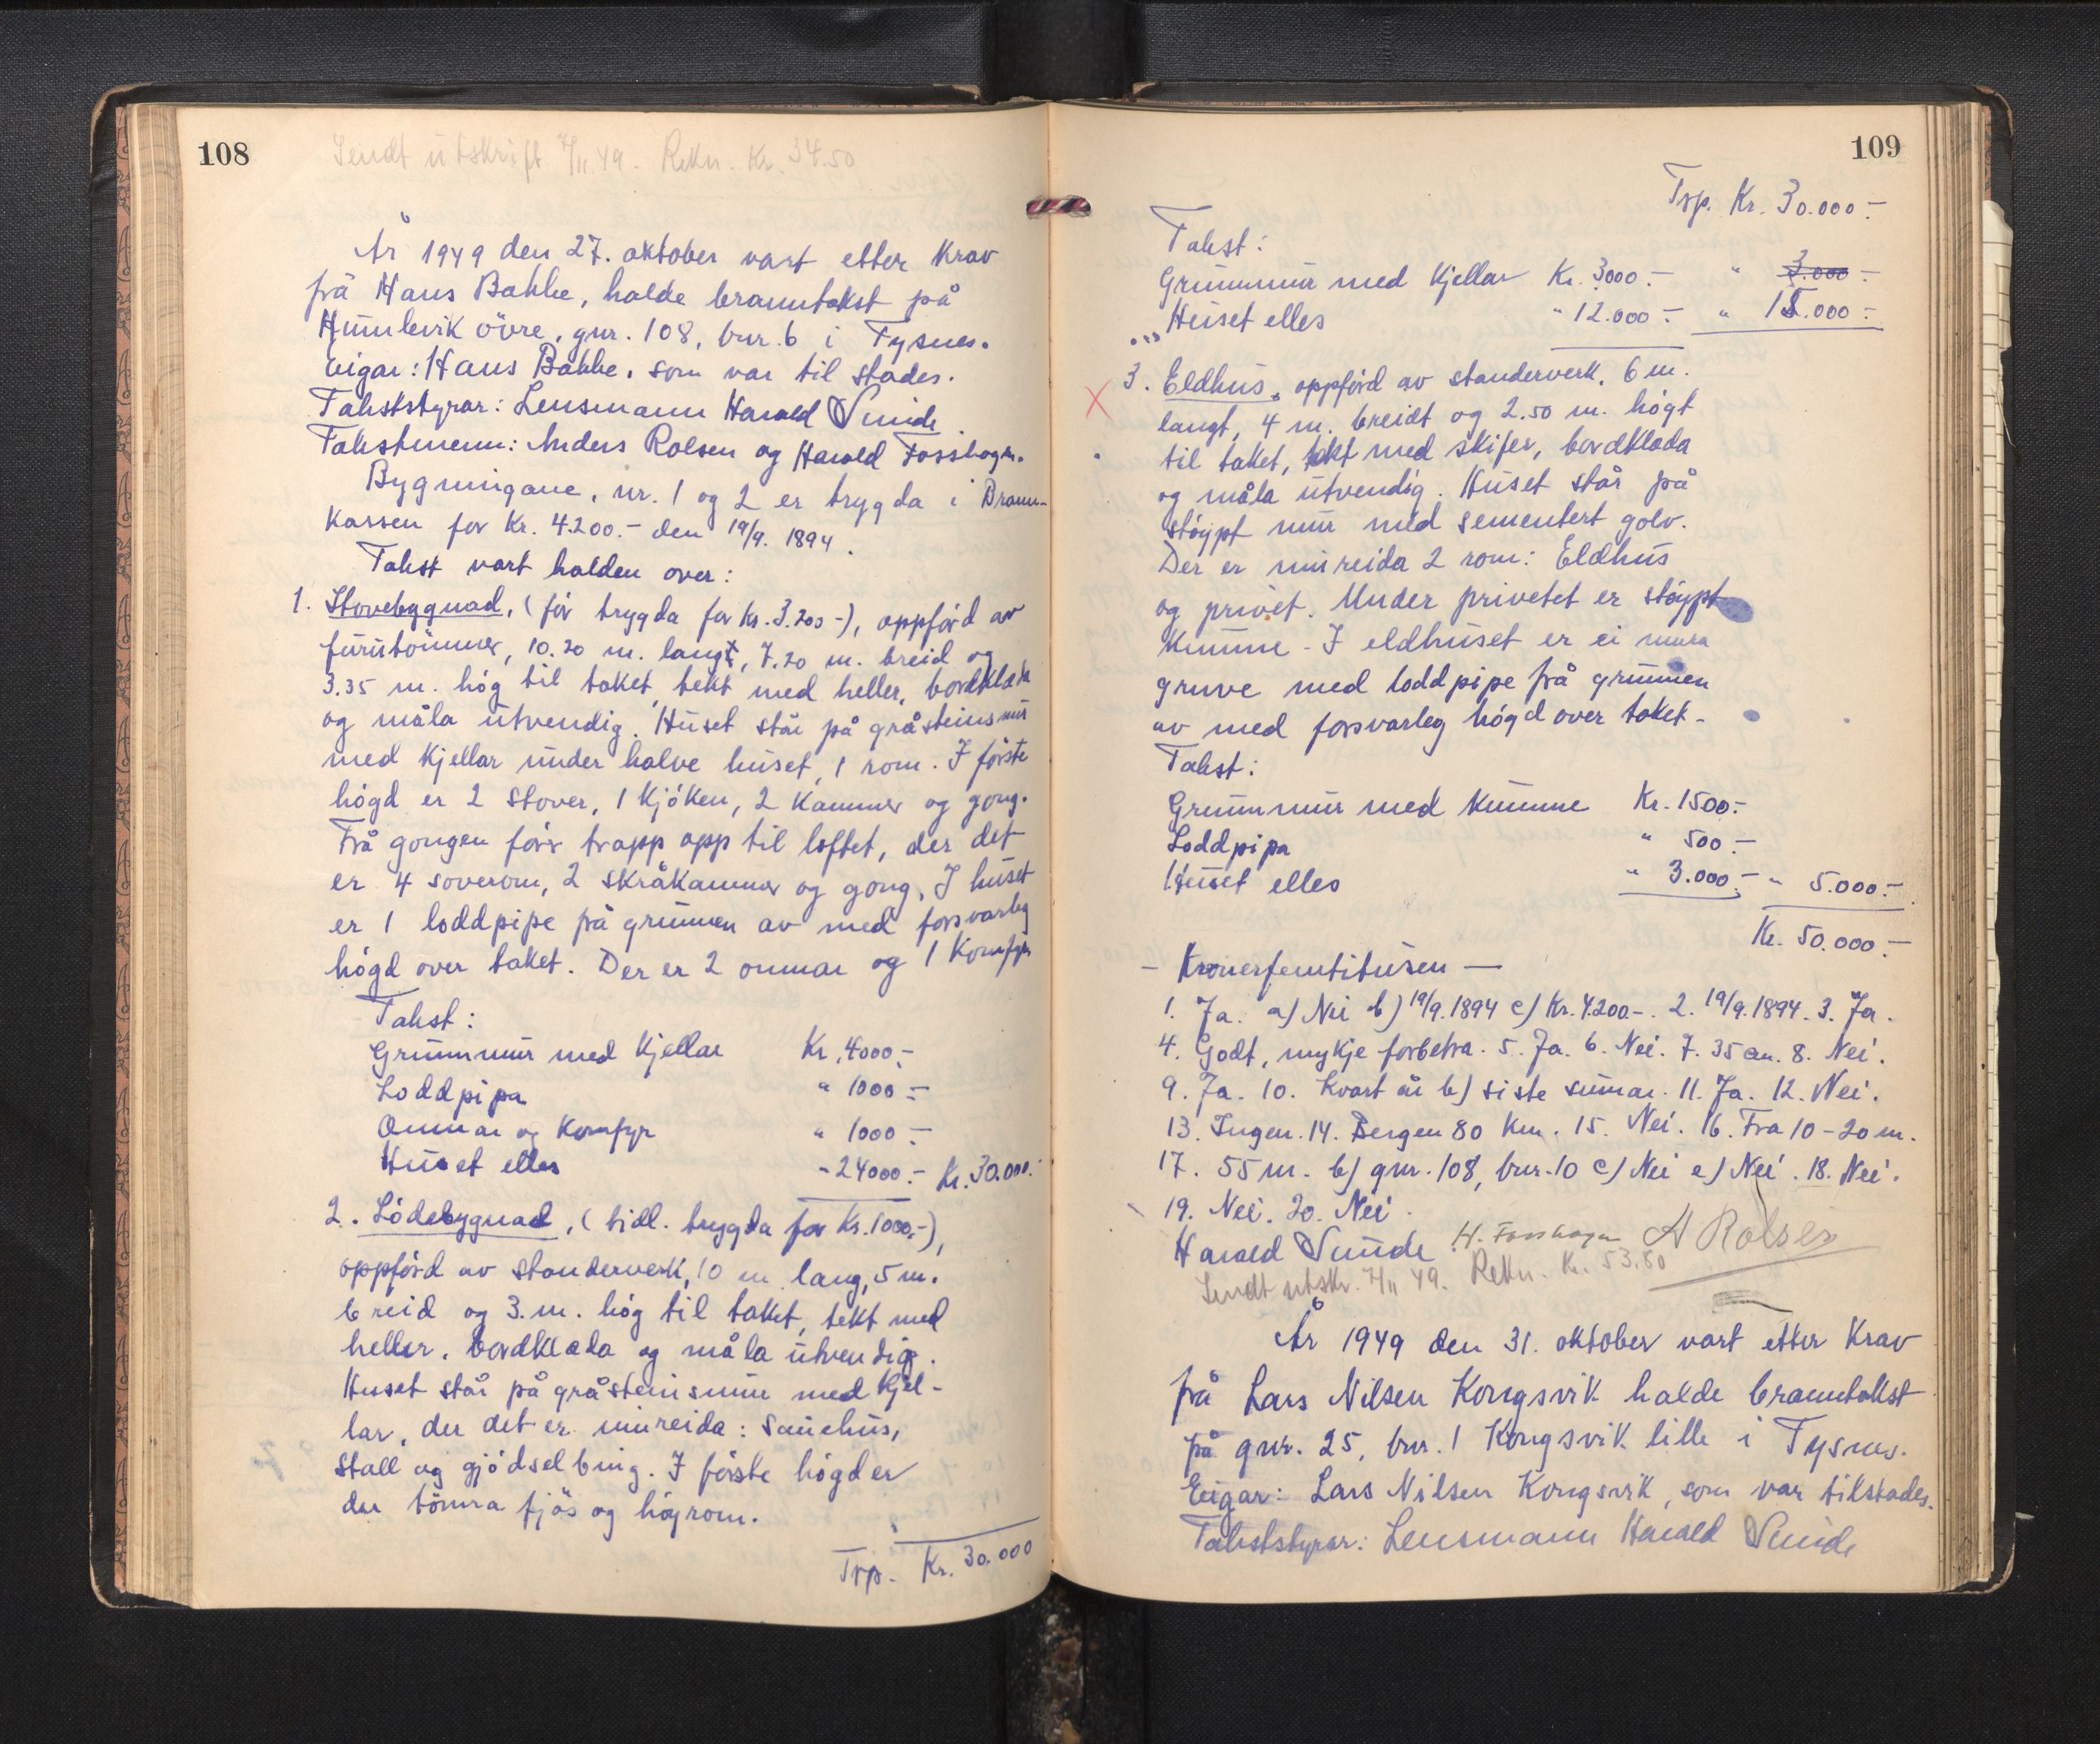 108
Sendt utskrift 7/11.49. Rekn. Kr. 34.50
År 1949 den 27. oktober vart etter krav
frå Hans Bakke, halde branntakst på
Humlevik övre, gnr. 108, bnr. 6 i Tysnes.
Eigar: Hans Bakke, som var til stades.
Takststyrar: Lensmann Harald Sunde.
Takstmenn: Anders Rolsen og Harald Fosshagen.
Bygningane, nr. 1 og 2 er trygda i Brann-
kassen for Kr. 4.200.- den 19/9. 1894.
Takst vart halden over:
1. Stovebygnad, (för trygda for Kr. 3.200-), oppförd av
furutömmer, 10.20 m. langt, 7.20 m. breid og
3.35 m. hög til taket, tekt med heller, bordklædd
og måla utvendig. Huset står på gråsteinsmur
med kjellar under halve huset, 1 rom. I förste
högd er 2 stover, 1 kjöken, 2 kammer og gong.
Frå gongen förer trapp opp til loftet, der det
er 4 soverom, 2 skråkammer og gong. I huset
er 1 loddpipe frå grunnen av med forsvarleg
högd over taket. Der er 2 omnar og 1 komfyr
Takst:
Grunnmur med kjellar Kr. 4000.-
Loddpipa " 1000.-
Omnar og komfyr " 1000.-
Huset elles - 24000.- Kr. 30.000.-
2. Lödebygnad, (tidl. trygda for Kr. 1000,-),
oppförd av standerverk, 10 m lang, 5 m.
breid og 3. m. hög til taket, tekt med
heller, bordklæda og måla utvendig.
Huset står på gråsteinsmur med kjel-
lar, der det er innreida: Sauehus,
stall og gjödselbing. I förste högd er
der tömra fjös og höyrom.
Trp. Kr. 30.000
109
Trp. Kr. 30.000.-
Takst:
Grunnmur med kjellar Kr. 3000.- " 3.000.-
Huset elles " 12.000.- " 15.000.-
3. Eldhus, oppförd av standerverk, 6 m.
langt, 4 m. breidt og 2.50 m. högt
til taket, tekt med skifer, bordklæda
og måla utvendig. Huset står på
stöypt mur med sementert golv.
Der er innreida 2 rom: Eldhus
og privet. Under privetet er stöypt
kumme - I eldhuset er ei mura
gruve med loddpipe frå grunnen
av med forsvarleg högd over taket -
Takst:
Grunnmur med kumme Kr. 1500.-
Loddpipa " 500.-
Huset elles " 3.000.- " 5.000.-
Kr. 50.000.-
- Kronerfemtitusen -
1. Ja. a) Nei b) 19/9.1894 c) Kr. 4.200.-. 2. 19/9.1894. 3. Ja.
4. Godt, mykje forbetra. 5. Ja. 6. Nei. 7. 35 cm. 8. Nei.
9. Ja. 10. Kvart år b) siste sumar. 11. Ja. 12. Nei.
13. Ingen. 14. Bergen 80 km. 15. Nei. 16. Fra 10-20 m.
17. 55 m. b) gnr. 108, bnr. 10 c) Nei e) Nei. 18. Nei.
19. Nei. 20. Nei.
Harald Sunde. H. Fosshagen A Rolsen
Sendt utskr. 7/11 49. Rekn. Kr. 53.80
År 1949 den 31. oktober vart etter krav
frå Lars Nilsen Kongsvik halde branntakst
på gnr. 25, bnr. 1 Kongsvik lille i Tysnes.
Eigar: Lars Nilsen Kongsvik, som var tilstades.
Takststyrar: Lensmann Harald Sunde